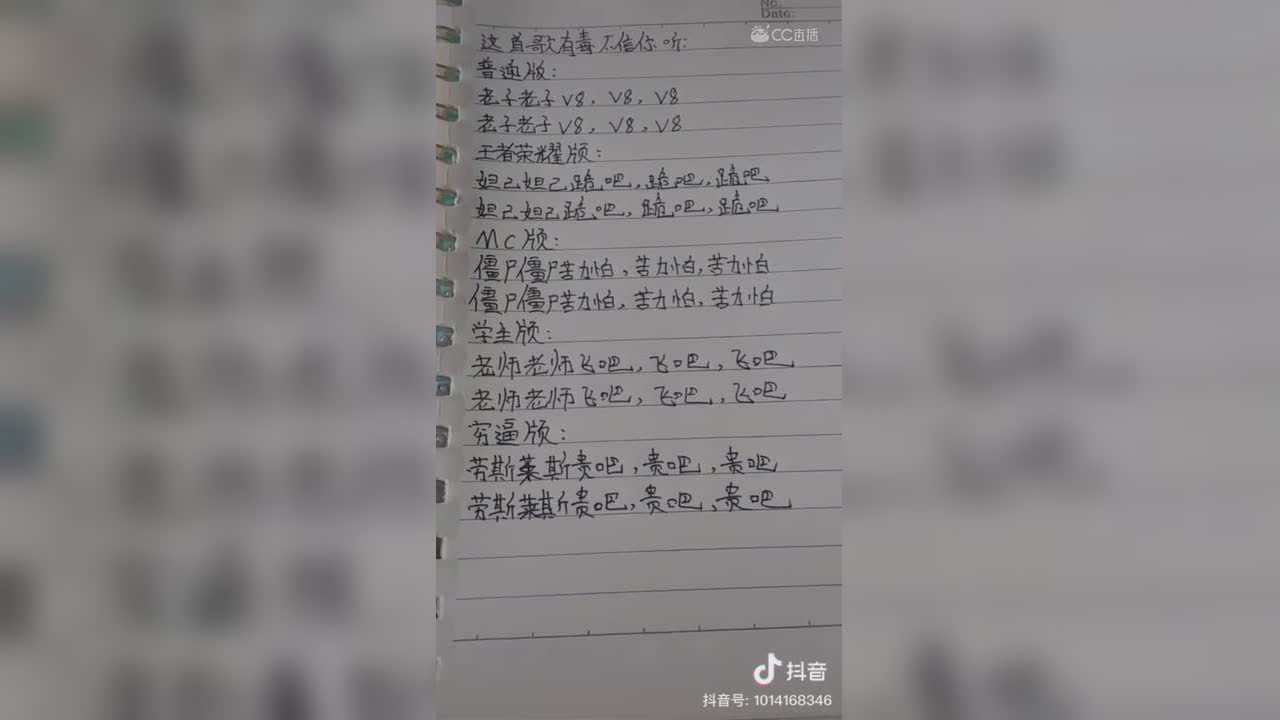 No.
Date:
CC直播
这首歌有毒不信你听:
普通版:
老子老子V8, V8, V8
老子老子V8, V8, V8
王者荣耀版:
妲己妲己跪吧,跪吧,跪吧
妲己妲己跪吧,跪吧,跪吧
MC版:
僵尸僵尸苦力怕,苦力怕,苦力怕
僵尸僵尸苦力怕,苦力怕,苦力怕
学生版:
老师老师飞吧,飞吧,飞吧
老师老师飞吧,飞吧,飞吧
穷逼版:
劳斯莱斯贵吧,贵吧,贵吧
劳斯莱斯贵吧,贵吧,贵吧
抖音
抖音号: 1014168346